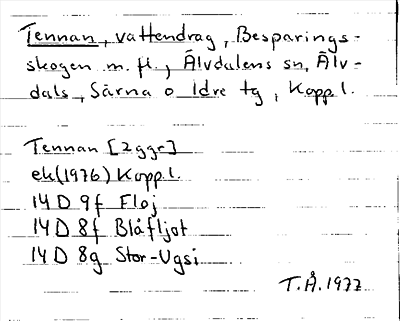 Tennan, vattendrag, Besparings-
skogen m. fl., Älvdalens sn, Älv-
dals, Särna o Idre tg, Kopp l.
Tennan [2 ggr]
ek (1976) Kopp l.
14 D 9f Floj
14 D 8f Blåfljot
14 D 8g Stor-Ugsi
T.Å. 1977